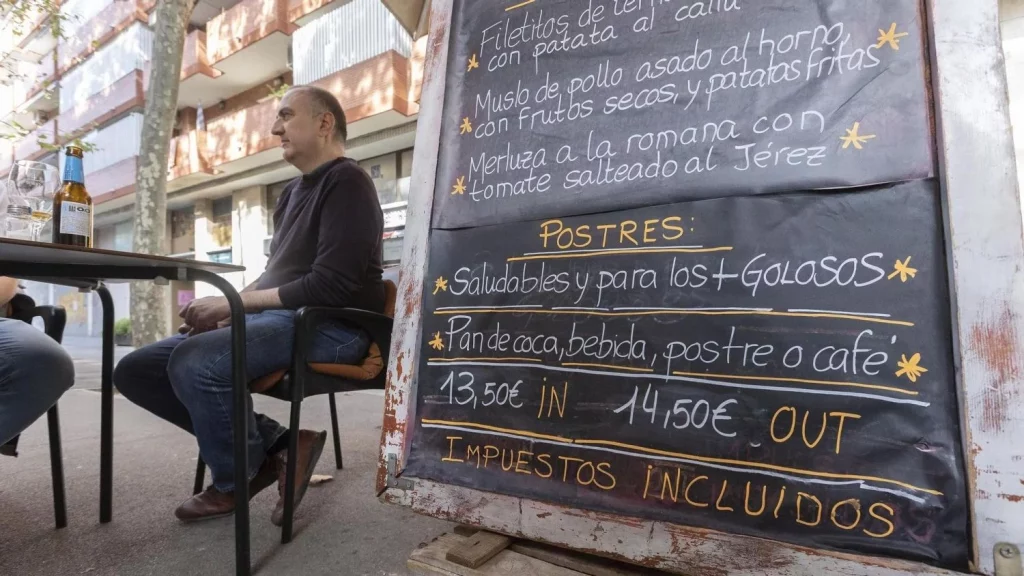 Filetitos de ternera
con patata al caliu
Muslo de pollo asado al horno,
con frutos secos y patatas fritas
Merluza a la romana con
tomate salteado al Jérez
POSTRES:
Saludables y para los + GOLOSOS
Pan de coca, bebida, postre o café
13,50€ IN 14,50€ OUT
IMPUESTOS INCLUIDOS